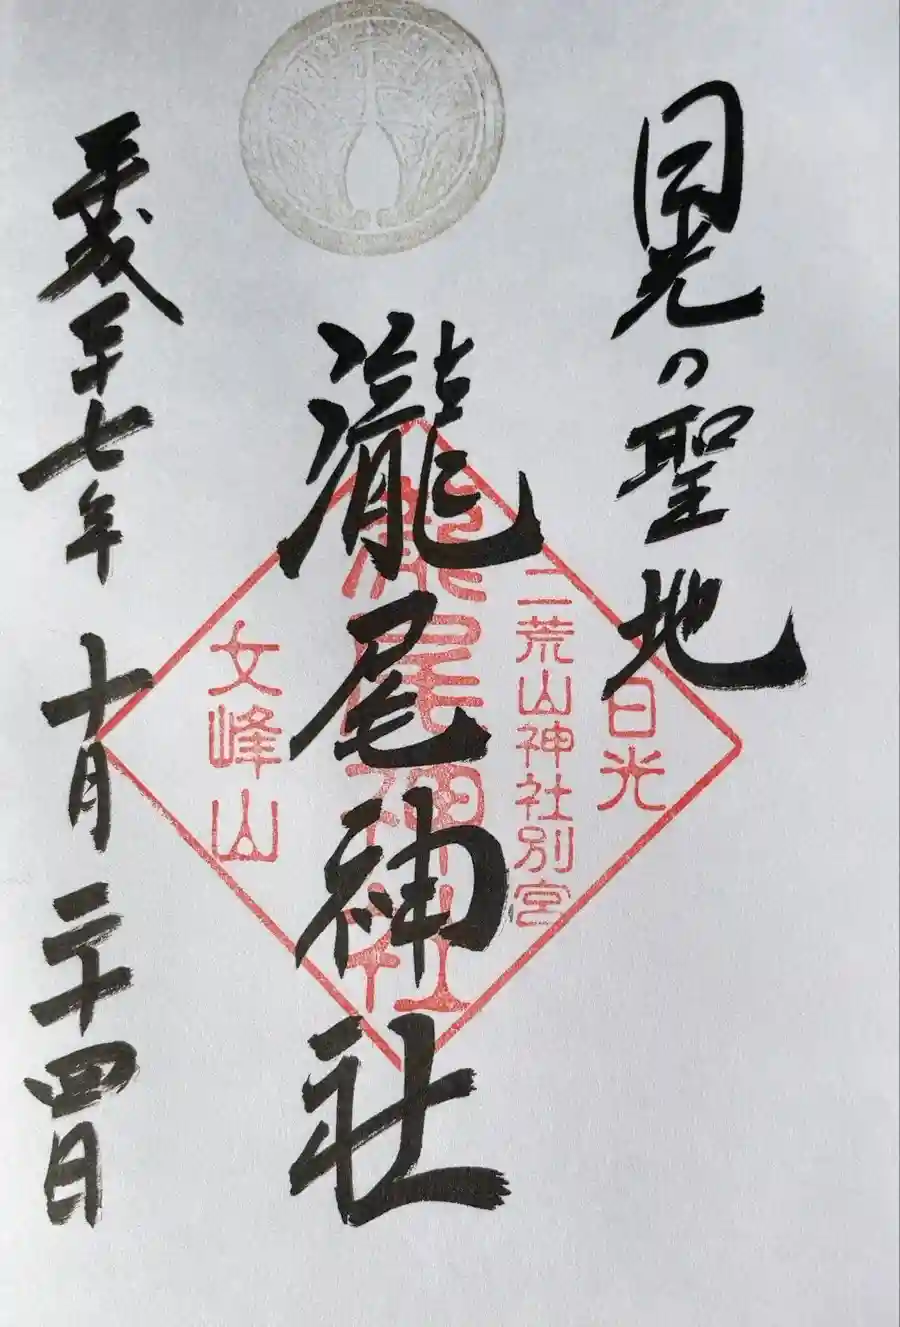 日光の聖地
日光
二荒山神社別宮
瀧尾神社
瀧尾神社
女峰山
平成二十七年 十月 二十四日